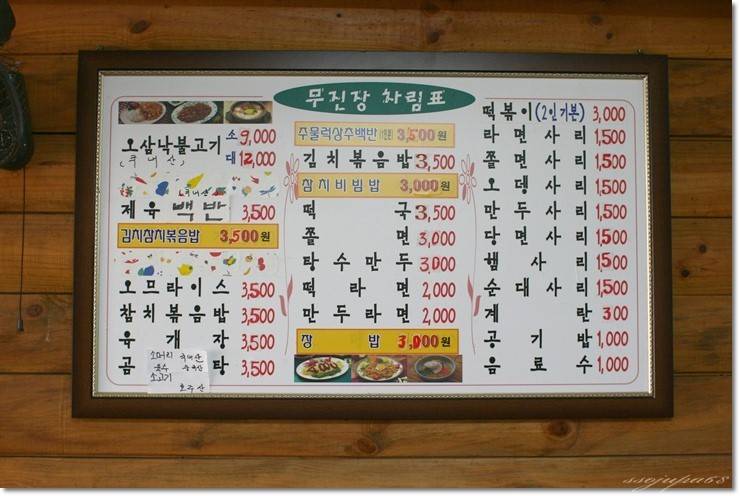 무진장 차림표
오삼낙불고기 소 9,000
(국내산) 대 12,000
제육백반 3,500
김치참치볶음밥 3,500원
오므라이스 3,500
참치볶음밥 3,500
육개장 3,500
곰탕 3,500
소머리 국내산
소고기 호주산
주물럭상추백반 3,500원
김치볶음밥 3,500
참치비빔밥 3,000원
떡국 3,500
쫄면 3,000
탕수만두 3,000
떡라면 2,000
만두라면 2,000
짱밥 3,000원
떡볶이(2인기본) 3,000
라면사리 1,500
쫄면사리 1,500
오뎅사리 1,500
만두사리 1,500
당면사리 1,500
햄사리 1,500
순대사리 1,500
계란 300
공기밥 1,000
음료수 1,000
ssojupa68